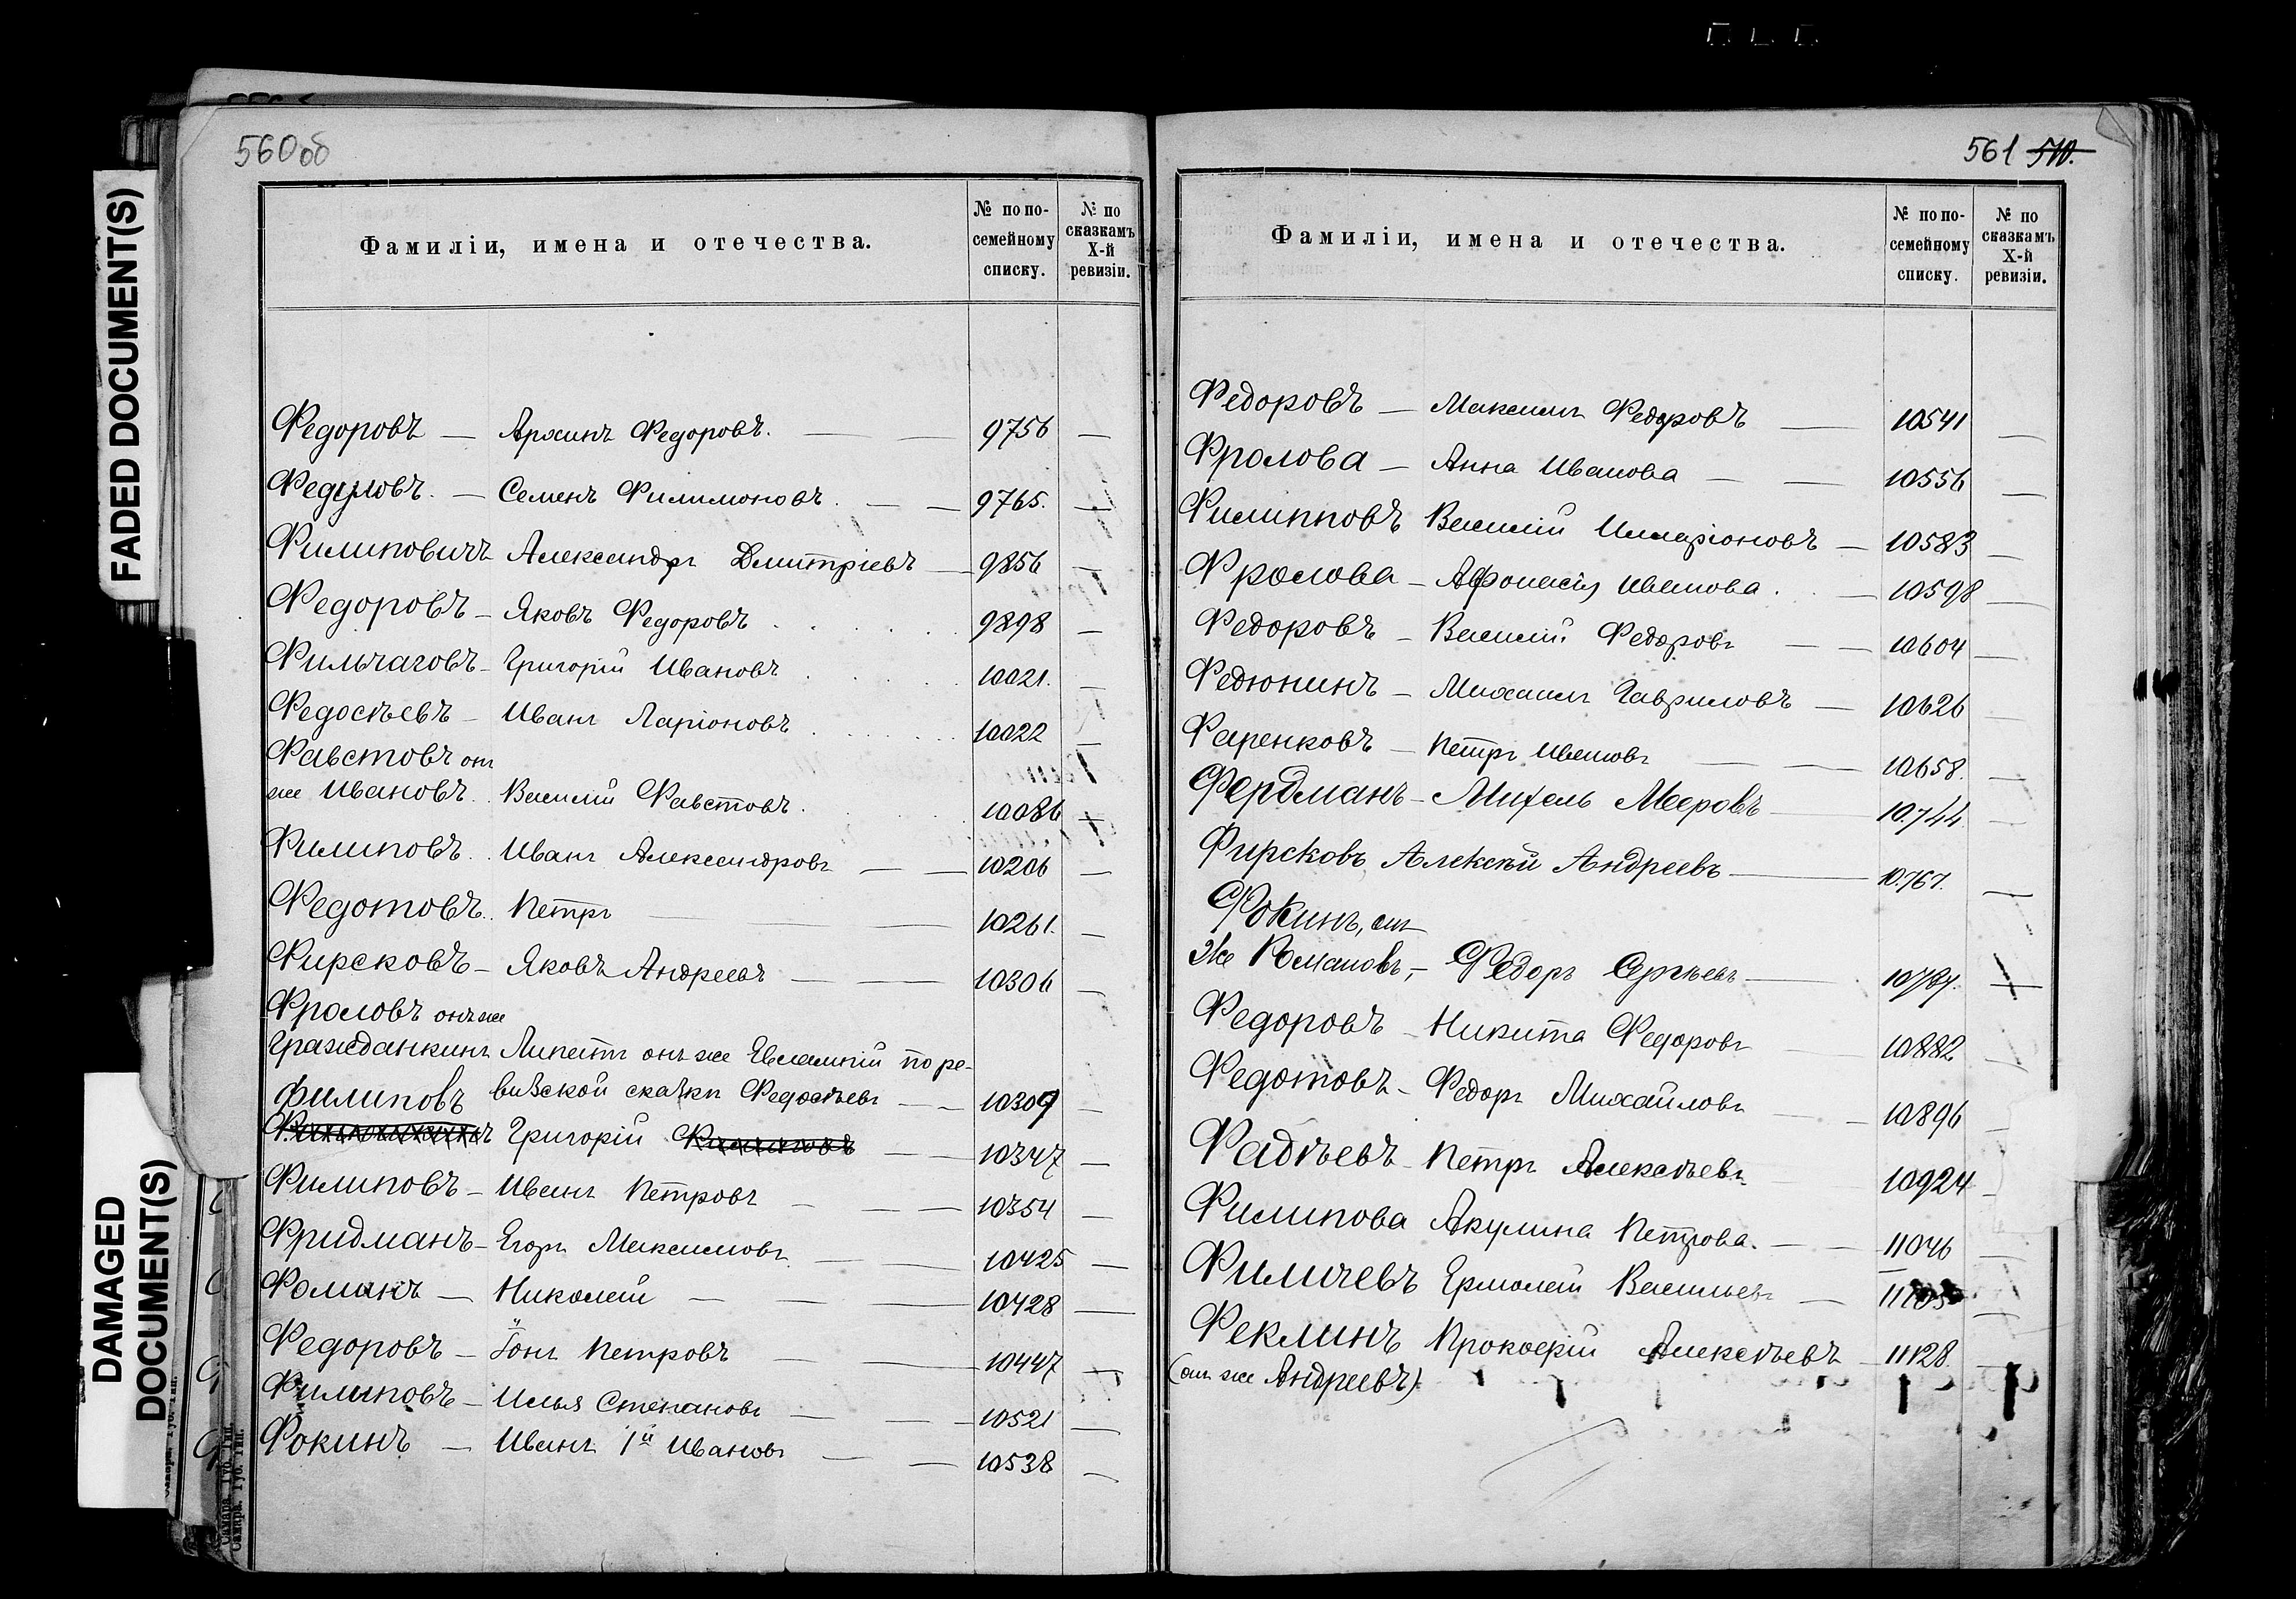 560об
Фамиліи, имена и отечества.
№ по по-
семейному
списку.
№ по
сказкамъ
X-й
ревизіи.
Федоровъ — Архипъ Федоровъ. — — 9756 —
Федуловъ. — Семенъ Филимоновъ. — — 9765. —
Филиповичъ Александръ Дмитріевъ — 9856 —
Федоровъ — Яковъ Федоровъ 9898 —
Фильчаговъ — Григорій Ивановъ 10021. —
Федосѣевъ — Иванъ Ларіоновъ 10022 —
Фавстовъ онъ
же Ивановъ. Василій Фавстовъ. 10086 —
Филиповъ. Иванъ Александровъ — — 10206 —
Федотовъ. Петръ — — 10261. —
Фирсковъ — Яковъ Андреевъ — — 10306 —
Фроловъ онъ же
Гражданкинъ Липатъ онъ же Евлампій по ре-
визской сказки Федосѣевъ — — 10309 —
Филиповъ
Григорій — — 10347 —
Филиповъ — Иванъ Петровъ — — — 10354 —
Фридманъ — Егоръ Максимовъ — — 10425 —
Фоманъ — Николай — — — 10428 —
Федоровъ — Іонъ Петровъ — — 10447 —
Филиповъ — Илья Степановъ — — — 10521 —
Фокинъ — Иванъ 1й Ивановъ — — 10538 —
561 510.
Фамиліи, имена и отечества.
№ по по-
семейному
списку.
№ по
сказкамъ
X-й
ревизіи.
Федоровъ — Максимъ Федоровъ — 10541 —
Фролова — Анна Иванова — — 10556 —
Филипповъ Василій Илларіоновъ — 10583 —
Фролова — Афонасія Иванова. — 10598 —
Федоровъ — Василій Федоровъ — — 10604 —
Федюнинъ — Михаилъ Гавриловъ — 10626 —
Фаренковъ — Петръ Ивановъ — — 10658. —
Фердманъ — Михель Мееровъ — 10744. —
Фирсковъ Алексѣй Андреевъ — 10767. —
Фокинъ, онъ
же Романовъ, — Федоръ Сергѣевъ — 10787. —
Федоровъ — Никита Федоровъ — 10882 —
Федотовъ — Федоръ Михайловъ — — 10896 —
Фадѣевъ — Петръ Алексѣевъ 10924 —
Филипова Акулина Петрова. — — 11046 —
Филичевъ Ермолай Васильевъ —
Феклинъ Прокофій Алексѣевъ — 11128. —
(онъ же Андреевъ)
FADED DOCUMENT(S)
DAMAGED
DOCUMENT(S)
Самара. Губ. Тип.
Самара. Губ. Тип.